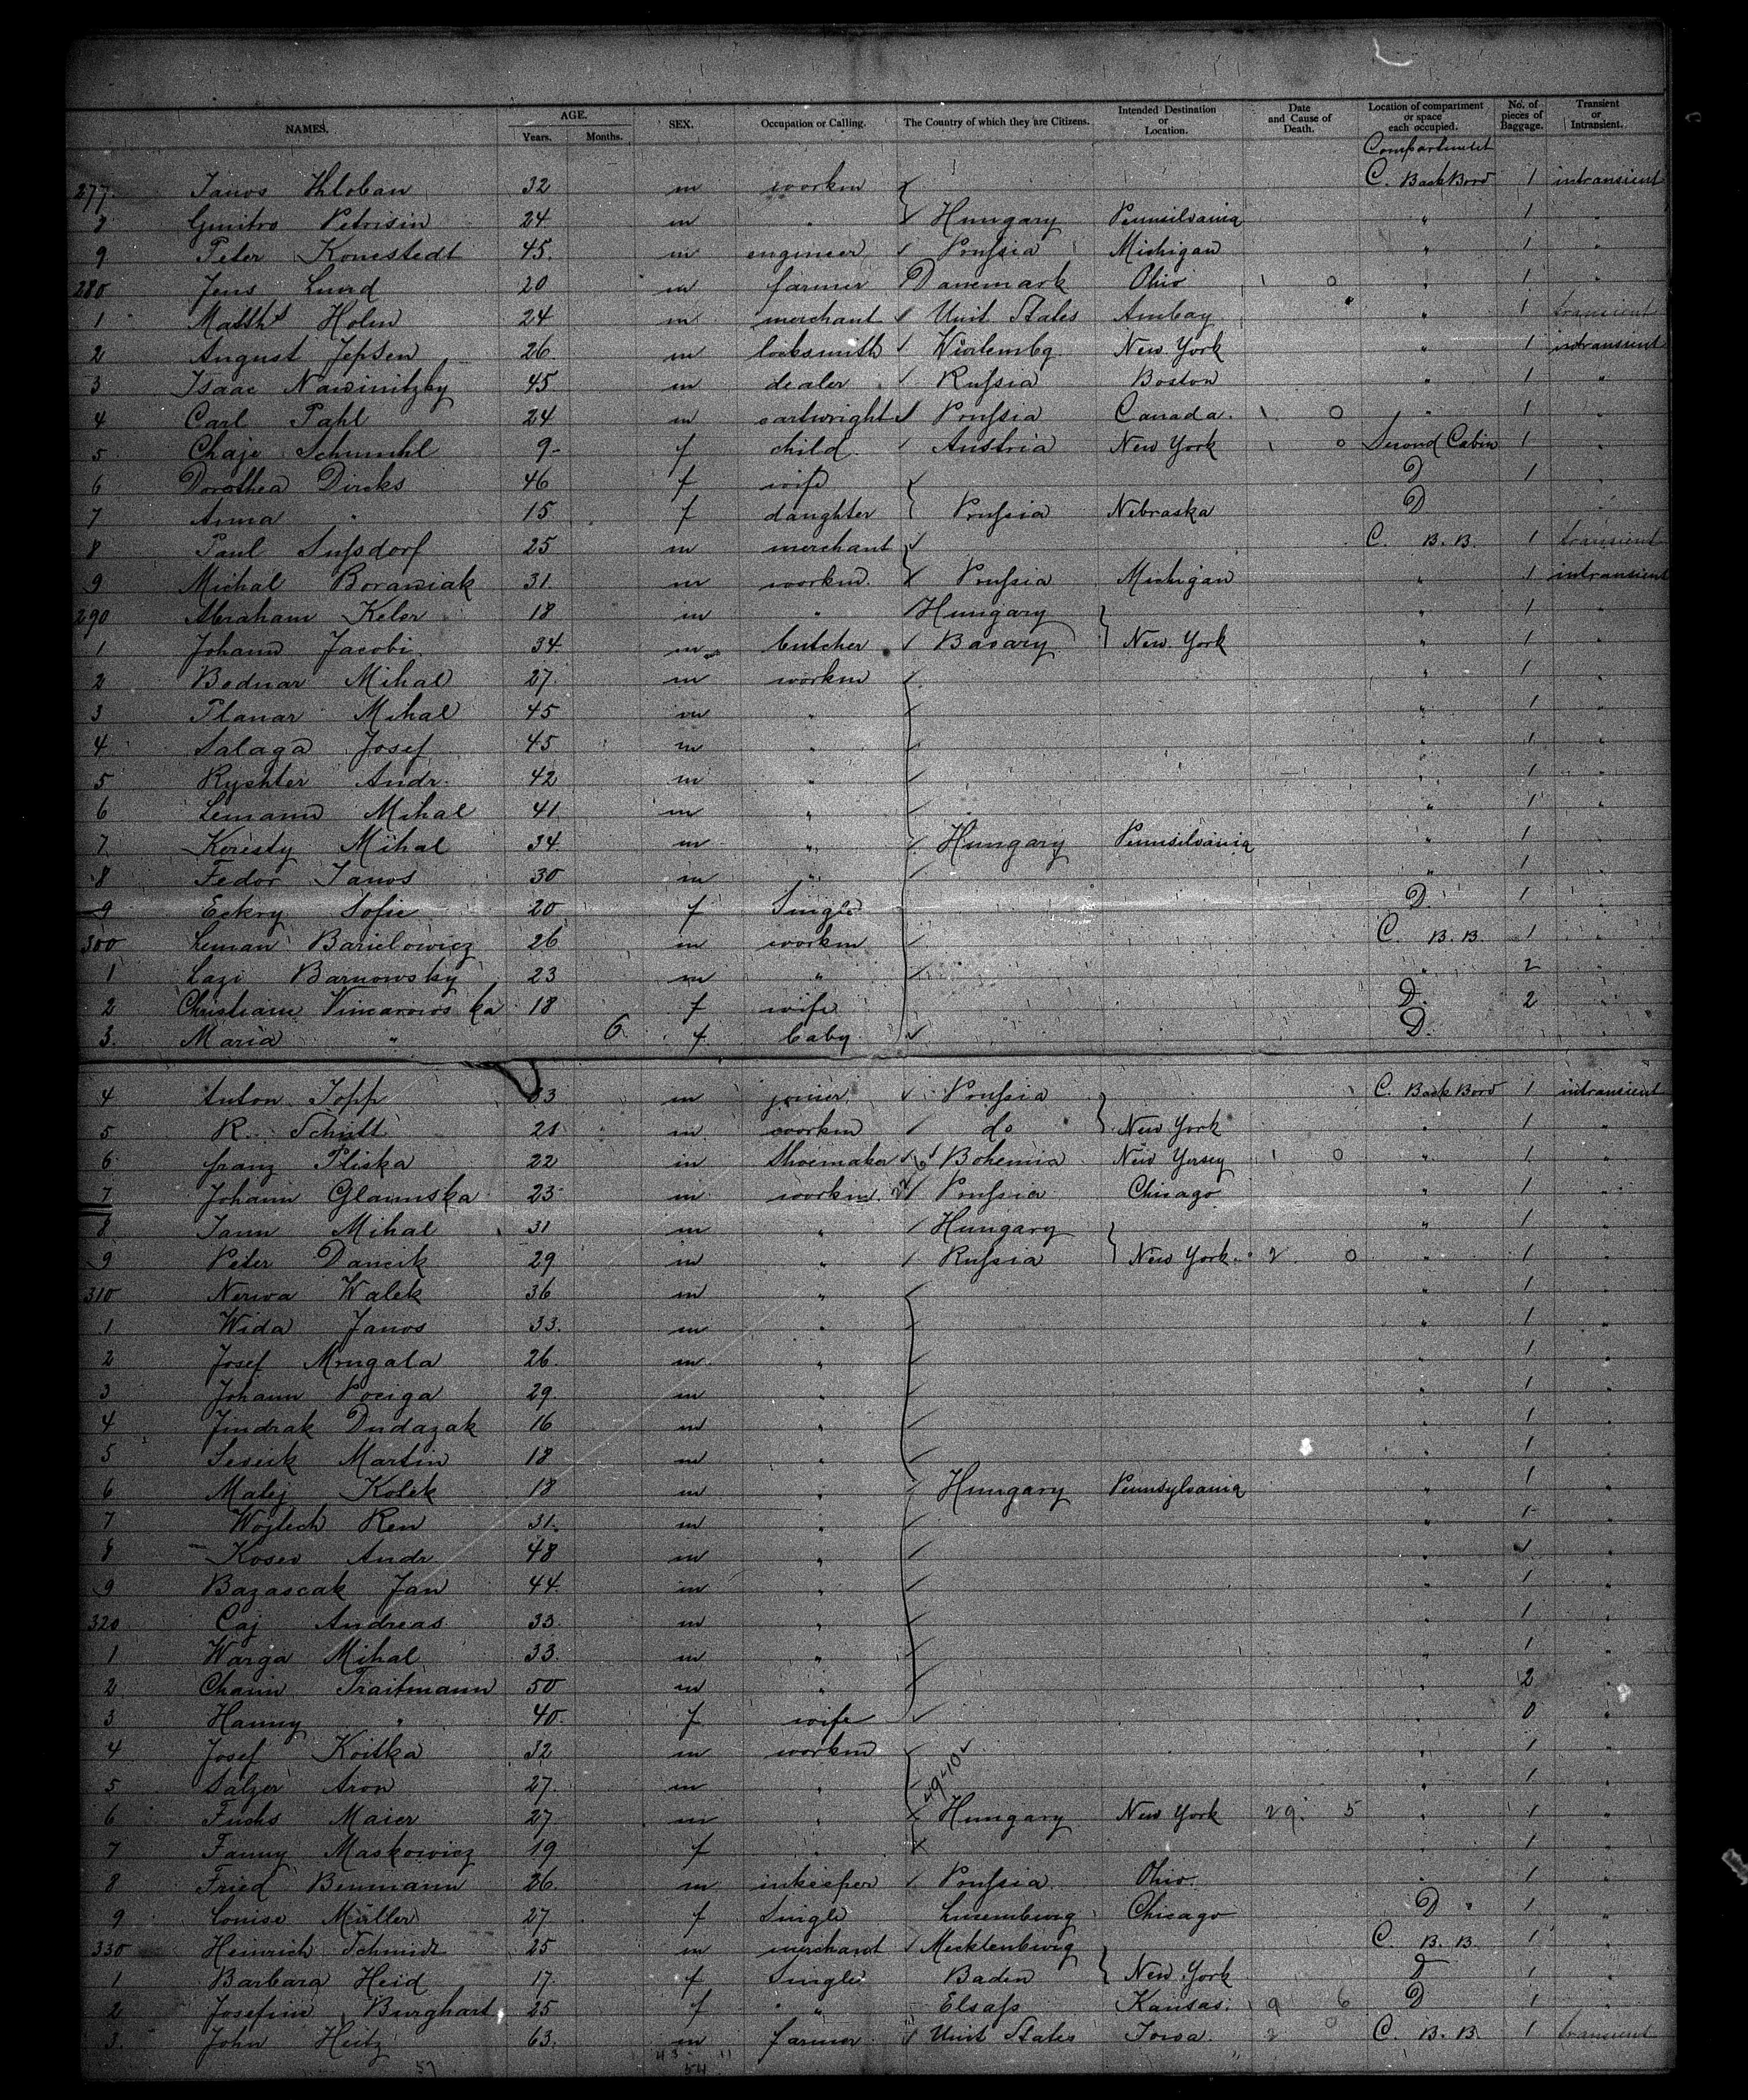 NAMES. AGE. Years. Months. SEX. Occupation or Calling. The Country of which they are Citizens. Intended Destination or Location. Date and Cause of Death. Location of compartment or space each occupied. No. of pieces of Baggage. Transient or Intransient.
Compartment
277 Janos Hloban 32 m workm C. BackBord 1 intransient
8 Gmitro Petrisin 24 m " Hungary Pennsilvania " 1 "
9 Peter Konestedt 45 m engineer Prussia Michigan " 1 "
280 Jens Lund 20 m farmer Danemark Ohio 1 0 " 1 "
1 Matths Holm 24 m merchant Unit States Ambay " 1 transient
2 August Jepsen 26 m locksmith Würtembg New York " 1 intransient
3 Isaac Nawinitzky 45 m dealer Russia Boston " 1 "
4 Carl Pahl 24 m cartwright Prussia Canada 1 0 " 1 "
5 Chaje Schmuhl 9 f child Austria New York 1 0 Second Cabin 1 "
6 Dorothea Dircks 46 f wife D 1 "
7 Anna " 15 f daughter Prussia Nebraska D
8 Paul Sussdorf 25 m merchant C. B.B. 1 transient
9 Michal Boraniak 31 m workm Prussia Michigan " 1 intransient
290 Abraham Keler 18 m " Hungary " 1 "
1 Johann Jacobi 34 m butcher Bavary New York " 1 "
2 Bodnar Mihal 27 m workm " 1 "
3 Planar Mihal 45 m " " 1 "
4 Salaga Josef 45 m " " 1 "
5 Ryshter Andr. 42 m " " 1 "
6 Lemann Mihal 41 m " " 1 "
7 Koristy Mihal 34 m " Hungary Pennsilvania " 1 "
8 Fedor Janos 30 m " " 1 "
9 Eckry Sofie 20 f Single D. 1 "
300 Leman Barielowicz 26 m workm C. B.B. 1 "
1 Lazi Barnowsky 23 m " " 2 "
2 Christiane Vimarows ka 18 f wife D. 2 "
3. Maria " 6 f baby D.
4 Anton Topp 33 m joiner Prussia C. Back Bord 1 intransient
5 R. Schütt 21 m workm do New York " 1 "
6 franz Pliska 22 m Shoemaker Bohemia New Yersey 1 0 " 1 "
7 Johann Glamnska 23 m workm Prussia Chicago " 1 "
8 Jann Mihal 31 m " Hungary " 1 "
9 Peter Dancik 29 m " Russia New York 2 0 " 1 "
310 Nerwa Walek 36 m " " 1 "
1 Wida Janos 33. m " " 1 "
2 Josef Mrugala 26. m " " 1 "
3 Johann Pociga 29. m " " 1 "
4 Jindrak Dudazak 16 m " " 1 "
5 Sesirk Martin 18 m " " 1 "
6 Matej Kolek 18 m " Hungary Pennsylvania " 1 "
7 Wojtech Ren 31. m " " 1 "
8 Koser Andr 48 m " " "
9 Bazascak Jan 44. m " " 1 "
320 Caj Andreas 33 m " " 1 "
1 Warga Mihal 33. m " " 1 "
2 Chaim Traitmann 50 m " " 2 "
3 Hanny " 40. f wife 0 "
4 Josef Koitka 32 m workm " 1 "
5 Salzer Aron 27. m " " 1 "
6 Fuchs Maier 27 m " Hungary New York 29. 5 " 1 "
7 Fanny Maskowicz 19 f " " 1 "
8 Fried Benmann 26. m inkeeper Prussia Ohio. " 1 "
9 Louise Müller 27 f Single Luxemburg Chicago D " 1 "
330 Heinrich Schmidt 25 m merchant Mecklenburg C. B.B. 1 "
1 Barbara Heid 17. f Single Baden New York D 1 "
2 Josefine Burghart 25 f " Elsass Kansas. 9 6 D 1 "
3. John Heitz 63. m farmer Unit States Iowa. 2 0 C. B.B. 1 transient
57 43 54 11